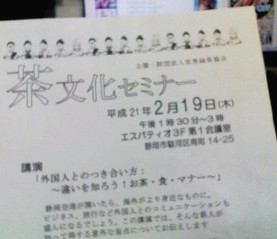 主催：財団法人世界緑茶協会
茶文化セミナー
平成21年2月19日(木)
午後1時30分～3時
エスパティオ3F第1会議室
静岡市駿河区南町14-25
講演
「外国人とのつき合い方：
～違いを知ろう！お茶・食・マナー～」
静岡空港が開いたら、海外がより身近なものに。
ビジネス、旅行など外国人とのコミュニケーションも
盛んになるでしょう。この講演では、そんな新人が
知って得する意外な盲点についてお伝えします